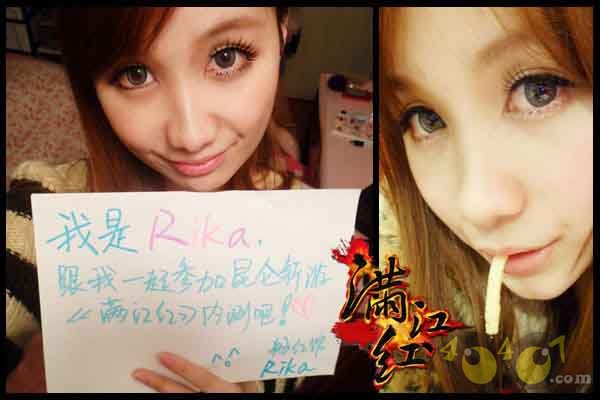 我是Rika.
跟我一起参加昆仑新游
《满江红》内测吧！
^o^
Rika
满江红
40407
.com